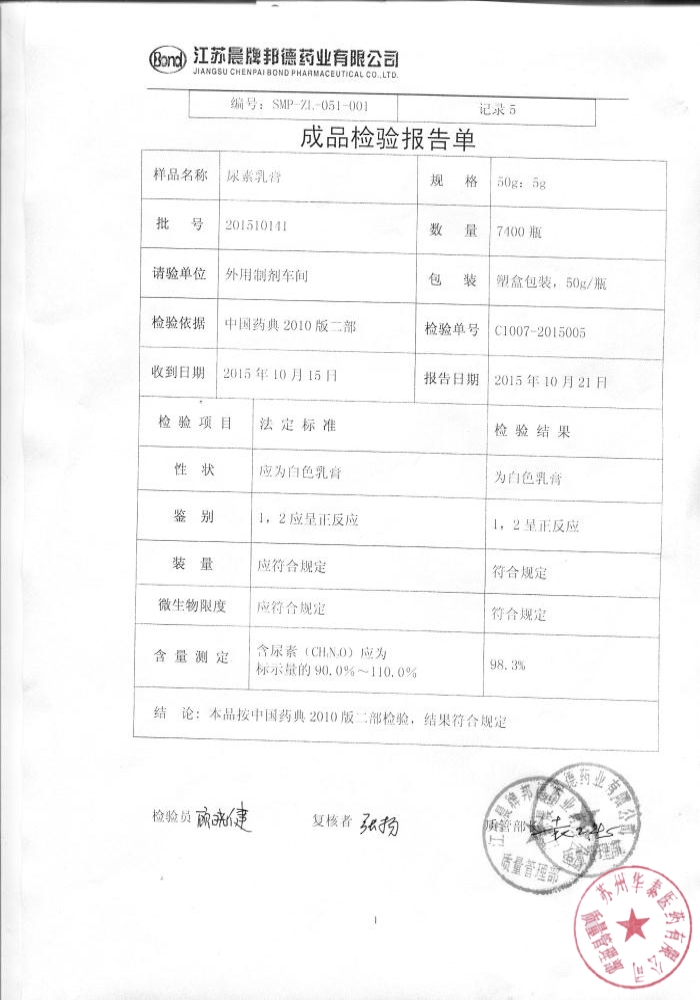 Bond 江苏晨牌邦德药业有限公司
JIANGSU CHENPAI BOND PHARMACEUTICAL CO.,LTD.
编号：SMP-ZL-051-001 记录 5
成品检验报告单
样品名称 尿素乳膏 规 格 50g：5g
批 号 201510141 数 量 7400 瓶
请验单位 外用制剂车间 包 装 塑盒包装，50g/瓶
检验依据 中国药典 2010 版二部 检验单号 C1007-2015005
收到日期 2015 年 10 月 15 日 报告日期 2015 年 10 月 21 日
检 验 项 目 法 定 标 准 检 验 结 果
性 状 应为白色乳膏 为白色乳膏
鉴 别 1，2 应呈正反应 1，2 呈正反应
装 量 应符合规定 符合规定
微生物限度 应符合规定 符合规定
含 量 测 定 含尿素（CH₄N₂O）应为 98.3%
标示量的 90.0%～110.0%
结 论：本品按中国药典 2010 版二部检验，结果符合规定
检验员 复核者 张扬 质管部
质量管理部
苏州华泰医药有限公司
质量管理部
1